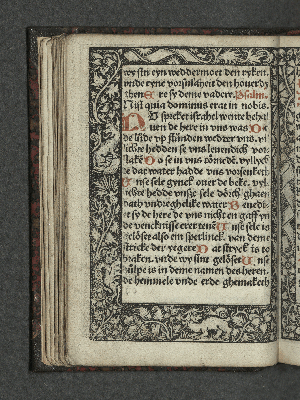 wy syn eyn wedder moet den ryken.
vnde eyne vorsmaheit den houerdy
then Ere sy deme vadere. Psalm.
Nisi quia dominus erat in nobis.
NV spreket israhel wente behal
uen de here in vns was Do
de lüde up stunden wedder vns. vyl
lichte hedden se vns leuendich vor
slaket Do se in vns tornedē. vyllych
te dat water hadde vns vorsenket
Unse sele gynck ouer de beke. vyl
lichte hedde vnse sele dorch ghan
dath vndreghelike water Benedi
et sy de here de vns nicht en gaff yn
de venckenisse erer tene Unse sele is
gelöset also ein sperlinck. van deme
stricke der yegere Dat stryck is to
braken. vnde wy synt gelöset Unse
hülpe is in deme namen des heren.
de hemmele vnde erde ghemaketh